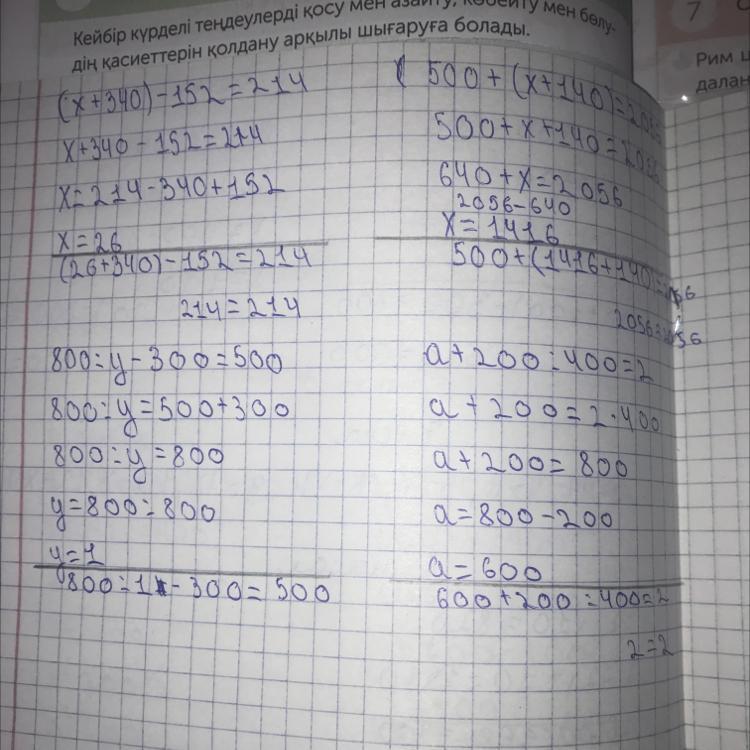 Кейбір күрделі теңдеулерді қосу мен азайту, көбейту мен бөлу-
дің қасиеттерін қолдану арқылы шығаруға болады.
7
Рим
далан
(x+340)-152=214
x+340-152=214
x=214-340+152
x=26
(26+340)-152=214
214=214
500+(x+140)=2056
500+x+140=2056
640+x=2056
2056-640
x=1416
500+(1416+140)=2056
2056=2056
800:y-300=500
800:y=500+300
800:y=800
y=800:800
y=1
800:1-300=500
a+200:400=2
a+200=2·400
a+200=800
a=800-200
a=600
600+200:400=2
2=2